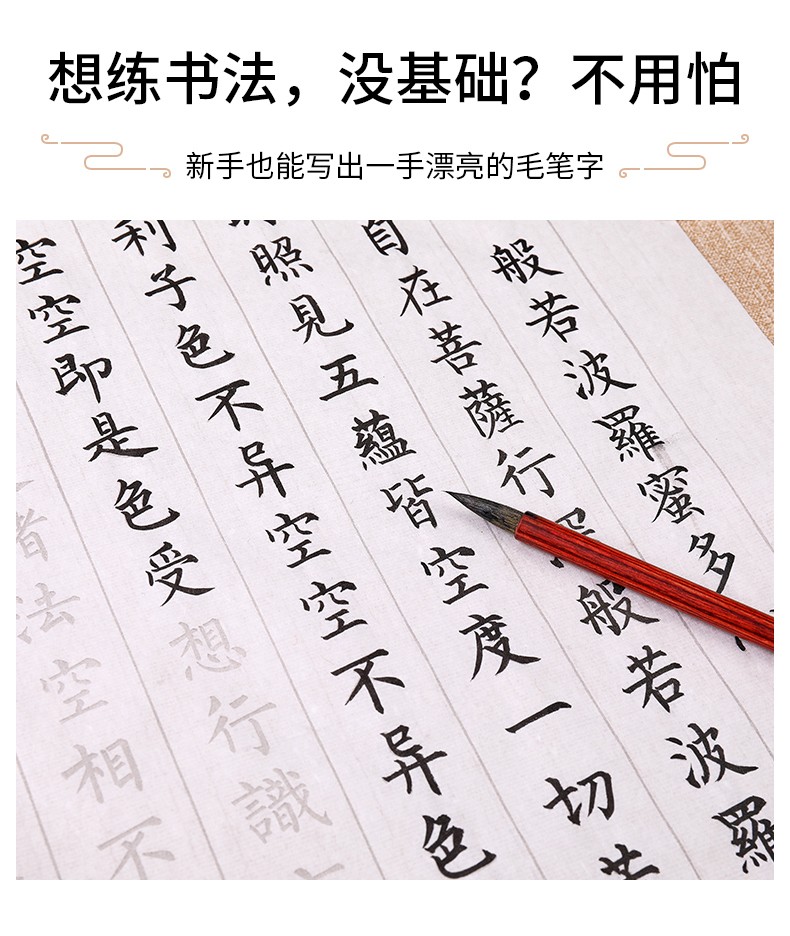 想练书法，没基础？不用怕
新手也能写出一手漂亮的毛笔字
般若波羅蜜多
自在菩薩行深般若波羅
照見五蘊皆空度一切苦
利子色不异空空不异色
空空即是色受想行識
者法空相不